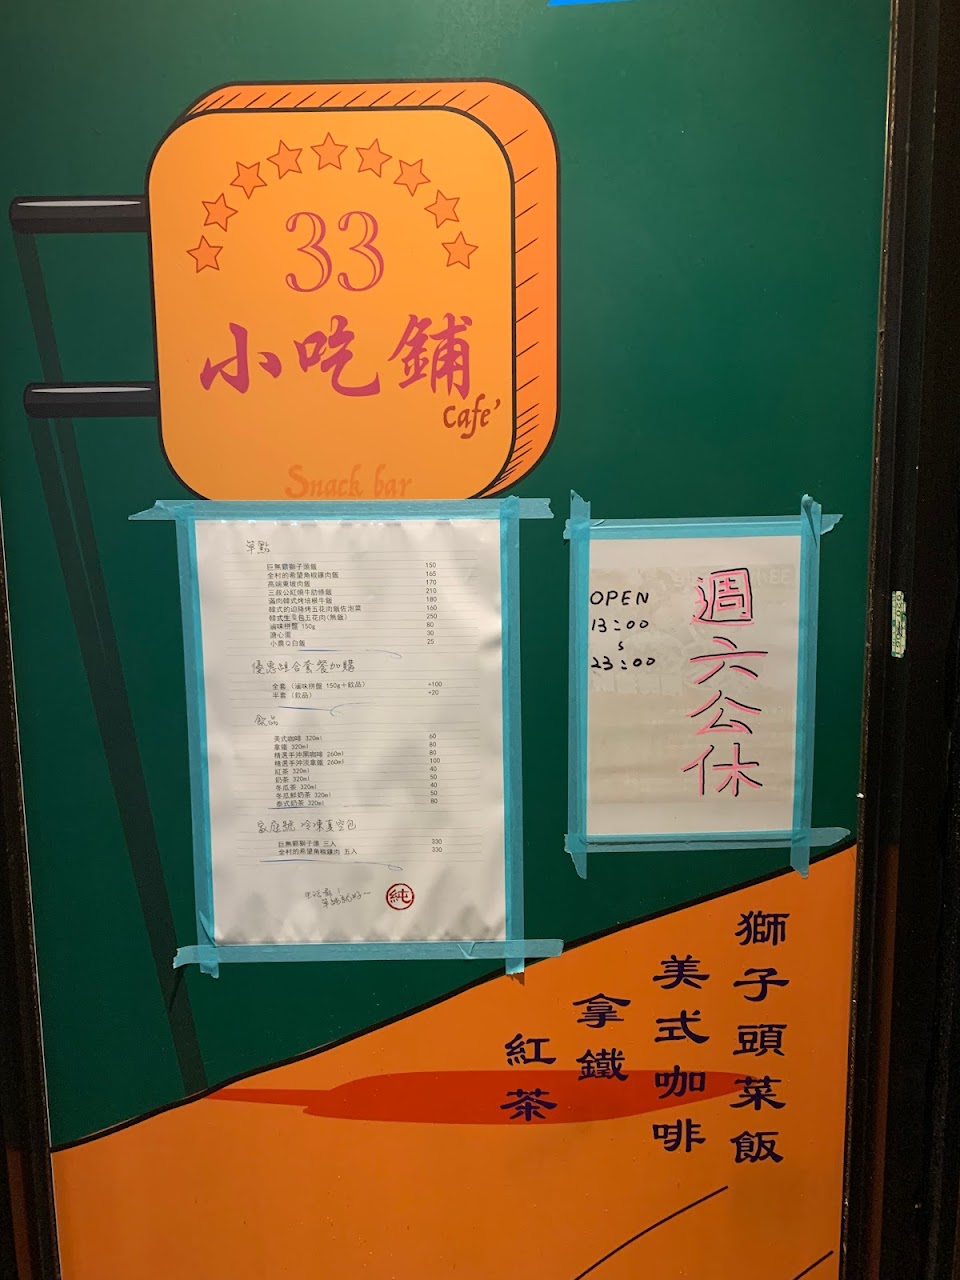 33
小吃鋪
Cafe'
Snack bar
單點
巨無霸獅子頭飯 150
全村的希望角椒雞肉飯 165
高端東坡肉飯 170
三叔公紅燒牛肋條飯 210
滿肉韓式烤培根牛飯 180
韓式的逆降烤五花肉飯佐泡菜 160
韓式生菜包五花肉(熱飯) 250
滷味拼盤 150g 80
溏心蛋 30
小農Q白飯 25
優惠組合套餐加購
全套 (滷味拼盤 150g+飲品) +100
半套 (飲品) +20
飲品
美式咖啡 320ml 60
拿鐵 320ml 80
精選手沖黑咖啡 260ml 80
精選手沖澳拿鐵 260ml 100
紅茶 320ml 40
奶茶 320ml 50
冬瓜茶 320ml 40
冬瓜鮮奶茶 320ml 50
泰式奶茶 320ml 80
家庭號 冷凍真空包
巨無霸獅子頭 三入 330
全村的希望角椒雞肉 五入 330
純
OPEN
13:00
23:00
週六公休
獅子頭菜飯
美式咖啡
拿鐵
紅茶